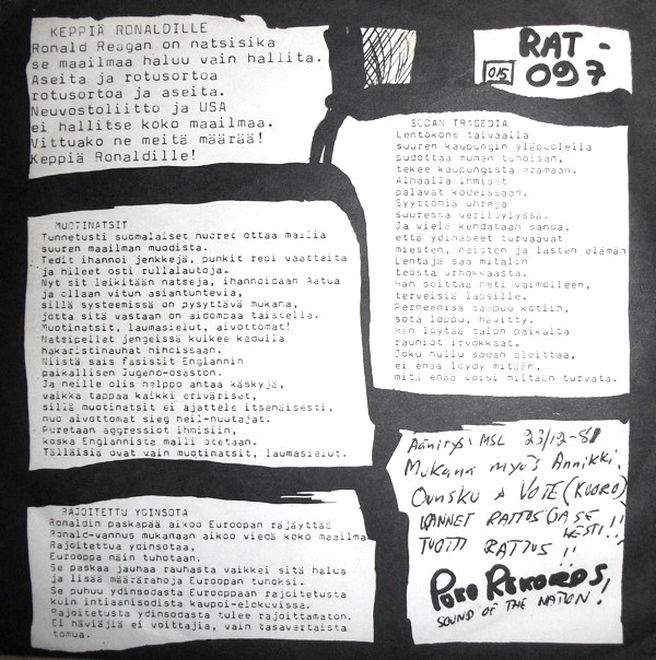 KEPPIÄ RONALDILLE
Ronald Reagan on natsisika
se maailmaa haluu vain hallita.
Aseita ja rotusortoa
rotusortoa ja aseita.
Neuvostoliitto ja USA
ei hallitse koko maailmaa.
Vittuako ne meitä määrää!
Keppiä Ronaldille!
RAT-
015 097
SODAN TRAGEDIA
Lentokone taivaalla
suuren kaupungin yläpuolella
pudottaa munan tuhoisan,
tekee kaupungista erämaan.
Alhaalla ihmiset
palavat kodeissaan.
Syyttömiä uhreja
suuressa verilöylyssä.
Ja vielä kehdataan sanoa,
että ydinaseet turvaavat
miesten, naisten ja lasten elämän
Lentäjä saa mitalin
teosta urhokkaasta.
Hän soittaa heti vaimolleen,
terveisiä lapsille.
Perheensä saapuu kotiin,
sota loppu, hävitty.
Hän löytää talon paikalta
rauniot irvokkaat.
Joku hullu sodan aloittaa,
ei enää löydy mitään,
mitä enää voisi miltään turvata.
MUOTINATSIT
Tunnetusti suomalaiset nuoret ottaa mallia
suuren maailman muodista.
Tedit ihannoi jenkkejä, punkit repi vaatteita
ja hileet osti rullalautoja.
Nyt sit leikitään natseja, ihannoidaan Aatua
ja ollaan vitun asiantuntevia,
sillä systeemissä on pysyttävä mukana,
jotta sitä vastaan on aidompaa taistella.
Muotinatsit, laumasielut, aivottomat!
Natsipellet jengeissä kulkee kadulla
hakaristinauhat hihoissaan.
Niistä sais fasistit Englannin
paikallisen Jugend-osaston.
Ja neille olis helppo antaa käskyjä,
vaikka tappaa kaikki eriväriset,
sillä muotinatsit ei ajattele itsenäisesti,
nuo aivottomat sieg heil-huutajat.
Puretaan aggressiot ihmisiin,
koska Englannista malli otetaan.
Tälläisiä ovat vain muotinatsit, laumasielut.
RAJOITETTU YDINSOTA
Ronaldin paskapää aikoo Euroopan räjäyttää
Ronald-vannus mukanaan aikoo viedä koko maailma
Rajoitettua ydinsotaa,
Eurooppa näin tuhotaan.
Se paskaa jauhaa rauhasta vaikkei sitä halua
ja lisää määrärahoja Euroopan tuhoksi.
Se puhuu ydinsodasta Eurooppaan rajoitetusta
kuin intiaanisodista kaupoi-elokuvissa.
Rajoitetusta ydinsodasta tulee rajoittamaton.
Ei häviäjiä ei voittajia, vain tasavertaista
tomua.
Äänitys: MSL 23/12-81
Mukana myös Annikki,
Ounsku & VOTE (KUORO)
KANNET RATTUS (JA SE KESTI!!
TUOTTI RATTUS!!
POKO REKORDS!
SOUND OF THE NATION!